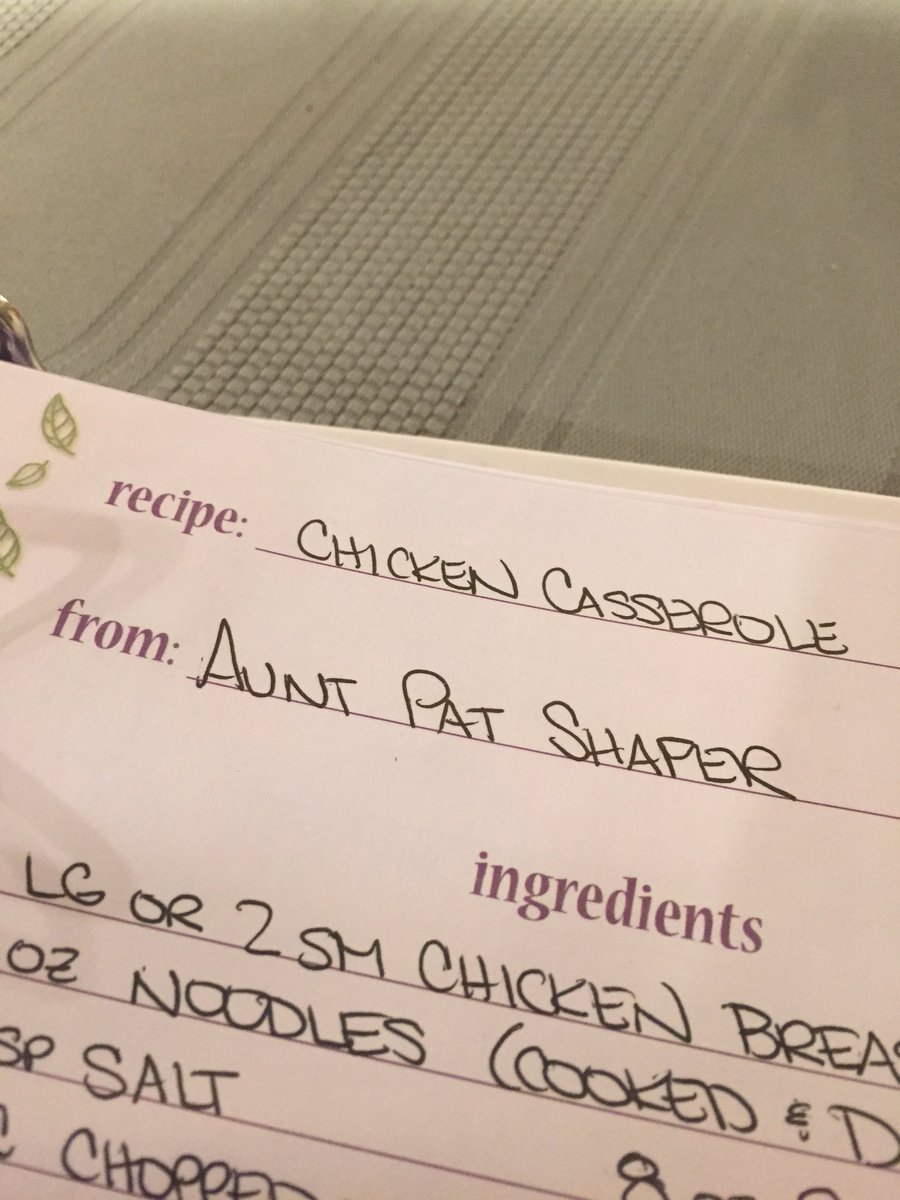 recipe: CHICKEN CASSEROLE
from: AUNT PAT SHAPER
ingredients
LG OR 2 SM CHICKEN
OZ NOODLES (COOKED &
SALT
CHOPPED